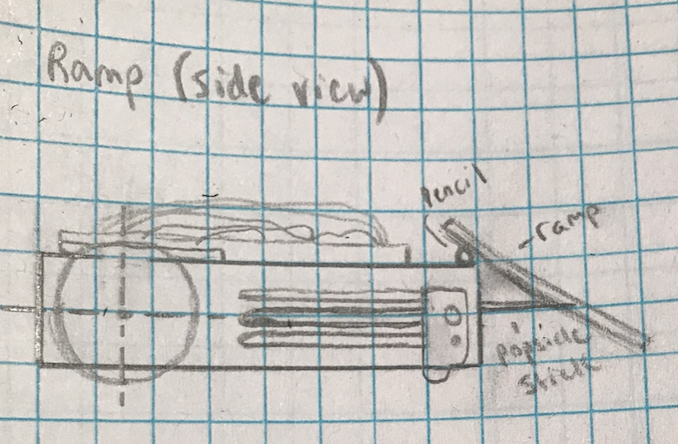 Ramp (side view)
pencil
ramp
popsicle
stick